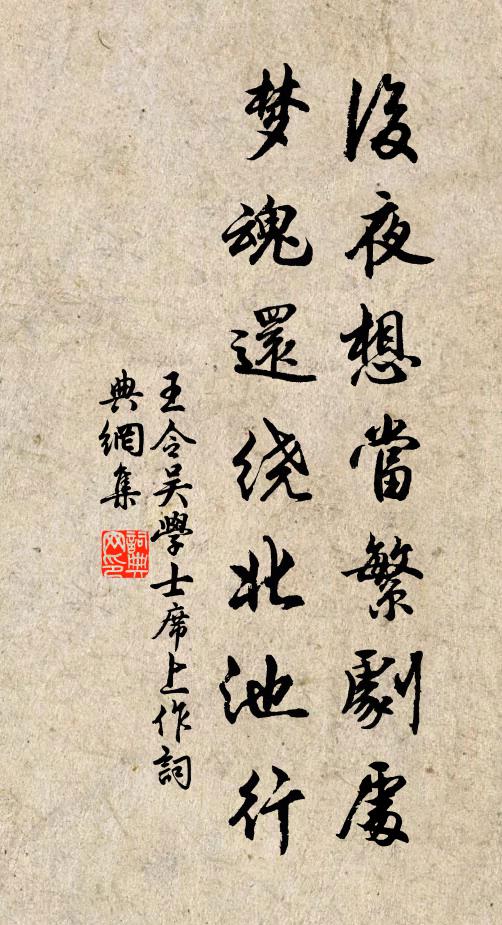 後夜想當繁劇處
梦魂還绕北池行
王令吴學士席上作詞
典網集
詞典网印